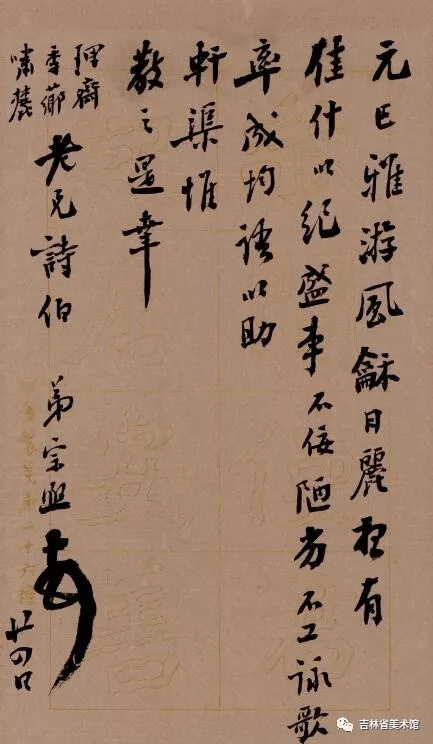 元巳雅游風龢日麗想有
佳什以紀盛事不佞陋劣不工詠歌
率成均語以助
軒渠惟
教之是幸
理齋
季薌
嘯麓
老兄詩伯 弟宗熙
廿四日
吉林省美术馆